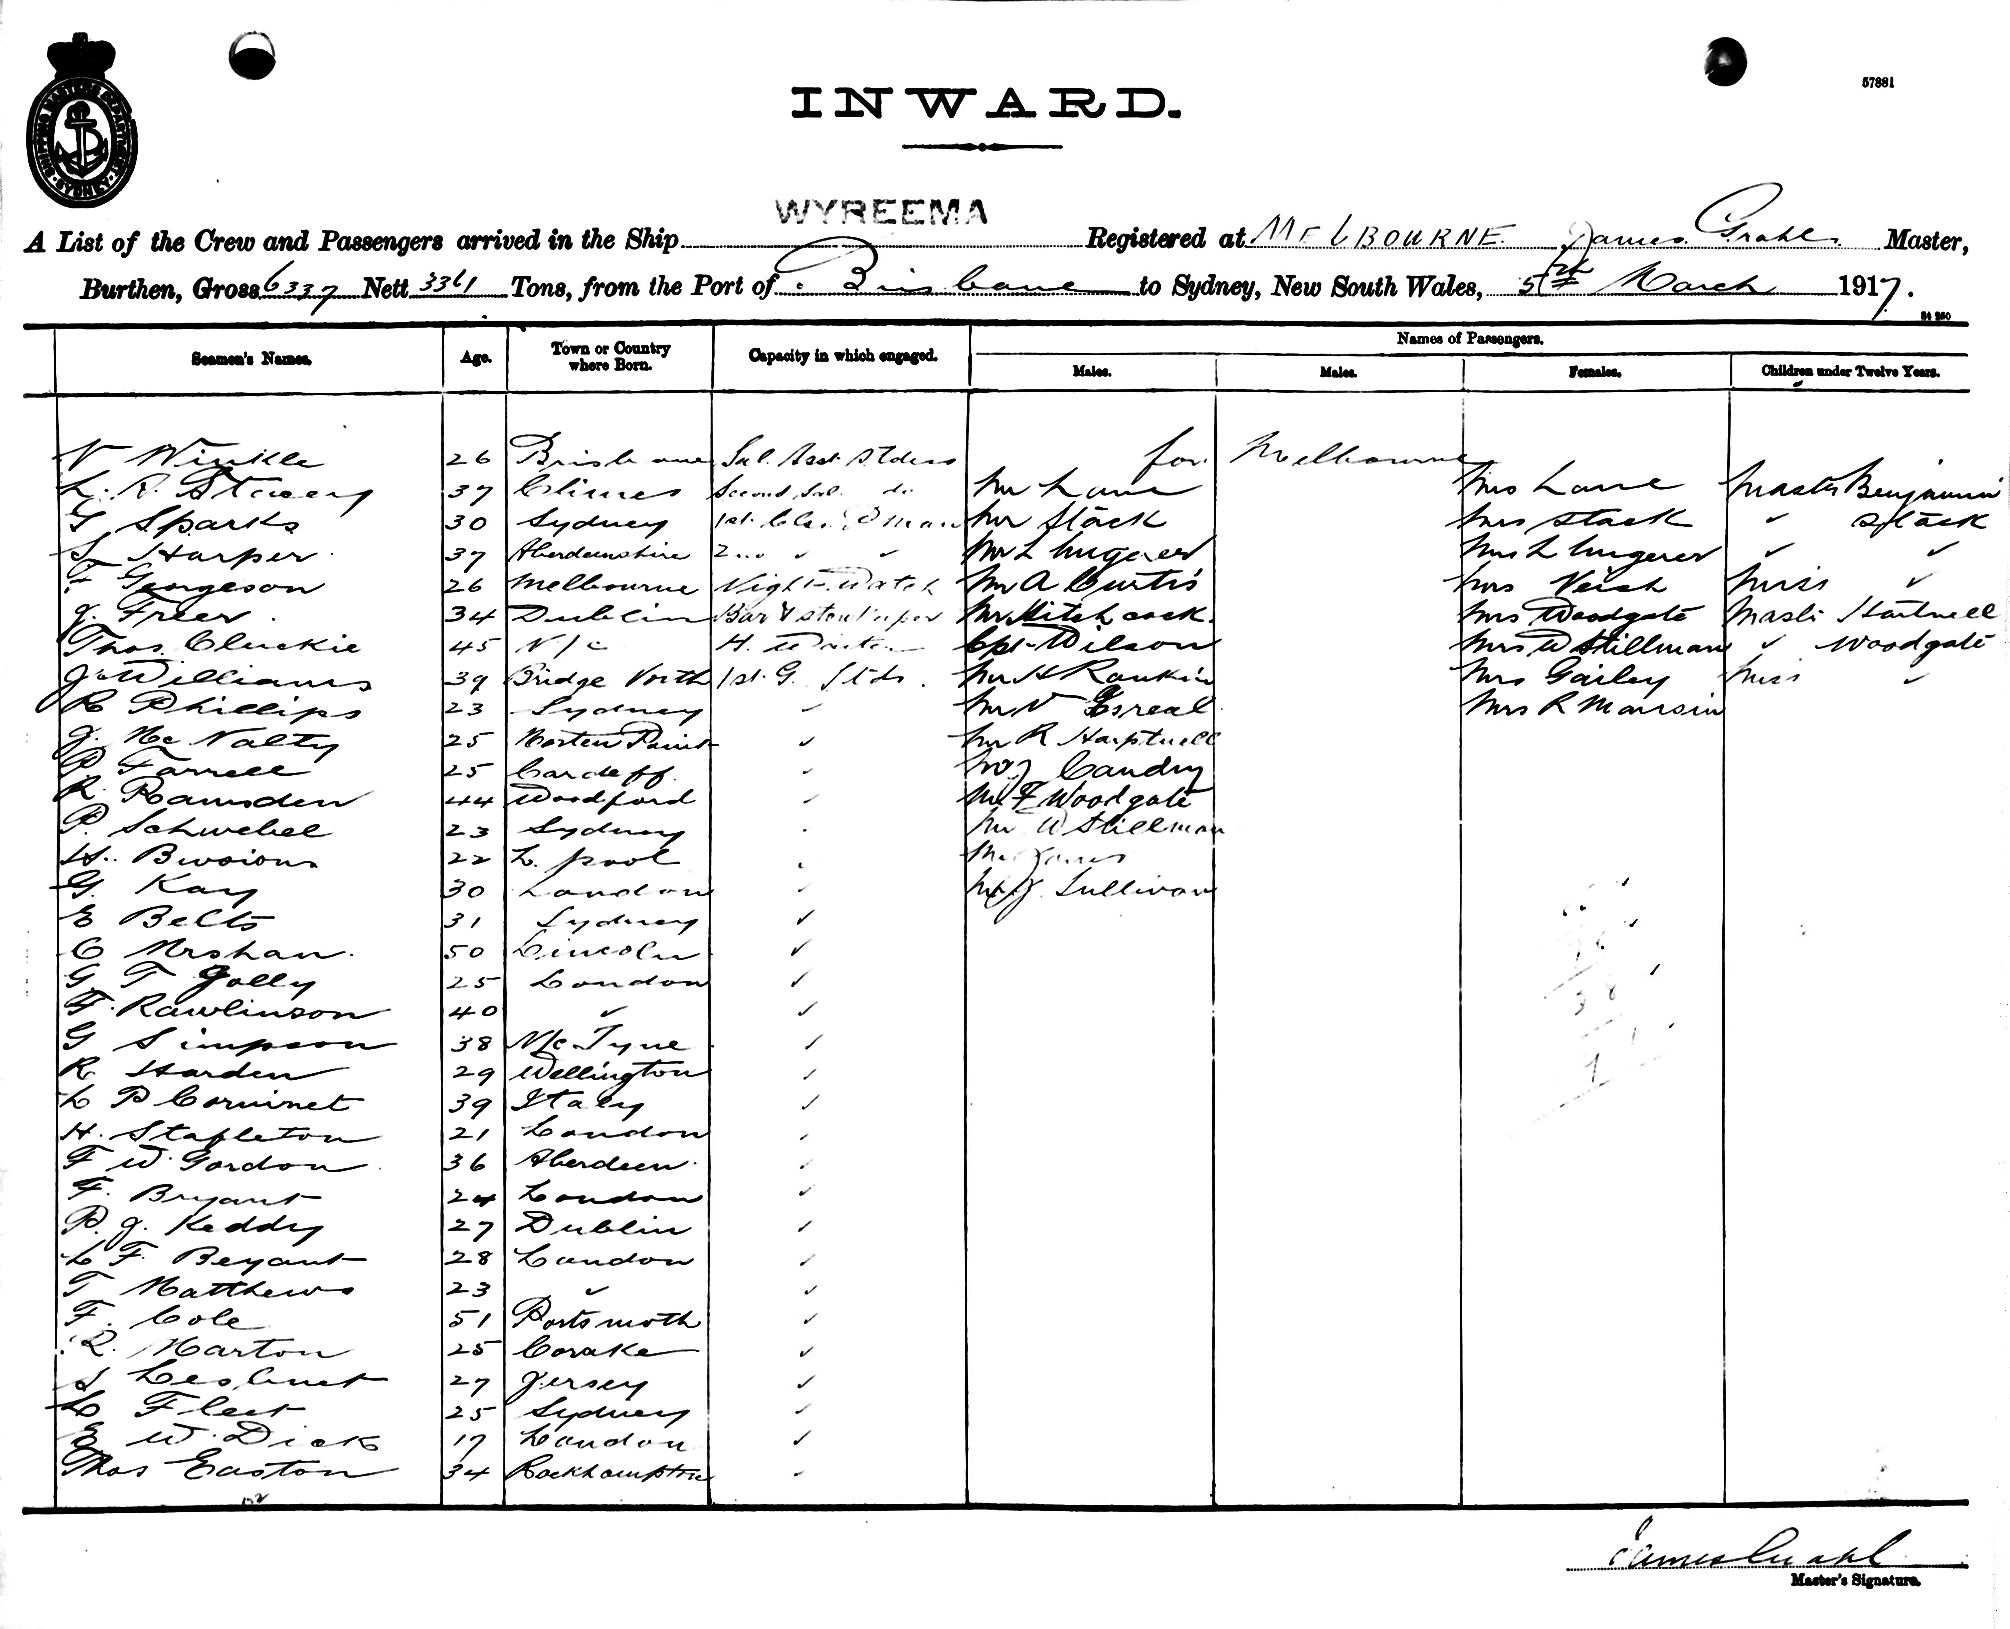 SHIPPING MASTERS DEPARTMENT SYDNEY
57881
INWARD.
A List of the Crew and Passengers arrived in the Ship WYREEMA Registered at MELBOURNE. James Grahl. Master,
Burthen, Gross 6337 Nett 3361 Tons, from the Port of Brisbane to Sydney, New South Wales, 5th March 1917.
Names of Passengers.
Seamen's Names. Age. Town or Country where Born. Capacity in which engaged. Males. Males. Females. Children under Twelve Years.
V Winkle 26 Brisbane for Melbourne
L. R. Stacey 37 Second Sal. do Mr Lane Mrs Lane Master Benjamin
G Sparks 30 Sydney Mr Stack Mrs Stack " Stack
S Harper 37 Aberdeenshire 2nd " " Mr L Ungerer Mrs L Ungerer " "
F Georgeson 26 Melbourne Night Watch Mr A Curtis Mrs Veich Miss "
J. Freer 34 Dublin Bar & storekeeper Mr Hitchcock Mrs Woodgate Mastr Hartnell
Thos Cluckie 45 N/c H. Waiter Cpt Wilson Mrs W Stillman " Woodgate
J Williams 39 Bridge North 1st G. Stds. Mr H Rankin Mrs Gailey Miss "
R Phillips 23 Sydney " Mr V Esreal Mrs R Marrsin
J. McNalty 25 " Mr R
P Farrell 25 Cardeff. " Candry
R. Ramsden 44 Woodford " Mr F Woodgate
P. Schwebel 23 Sydney " Mr W Stillman
H. 22 L. pool " Mr Jones
G. Kay 30 London " Mr J. Sullivan
E Belts 31 Sydney "
C 50 Lincoln "
G T Jolly 25 London "
F. Rawlinson 40 " "
G Simpson 38 N/c Tyne "
R. Harden 29 Wellington "
L P Corvinet 39 Italy "
H. Stapleton 21 London "
F W. Gordon 36 Aberdeen "
F. Bryant 24 London "
P. J. Keddy 27 Dublin "
L F. Beyant 28 London "
T Matthews 23 " "
F. Cole 51 Portsmoth "
R. Marton 25 Corake "
S 27 Jersey "
L Fleet 25 Sydney "
E W. Dick 17 London "
Thos Easton 34 Rockhampton "
James Grahl
Master's Signature.